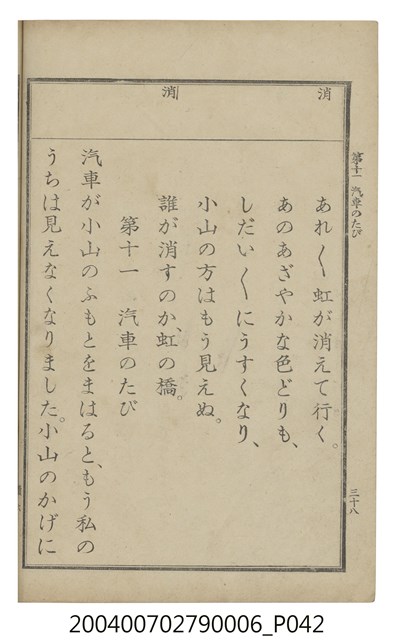 第十一 汽車のたび
三十八
消
消
あれ〳〵虹が消えて行く。
あのあざやかな色どりも、
しだい〳〵にうすくなり、
小山の方はもう見えぬ。
誰が消すのか、虹の橋。
第十一 汽車のたび
汽車が小山のふもとをまはると、もう私の
うちは見えなくなりました。小山のかげに
200400702790006_P042